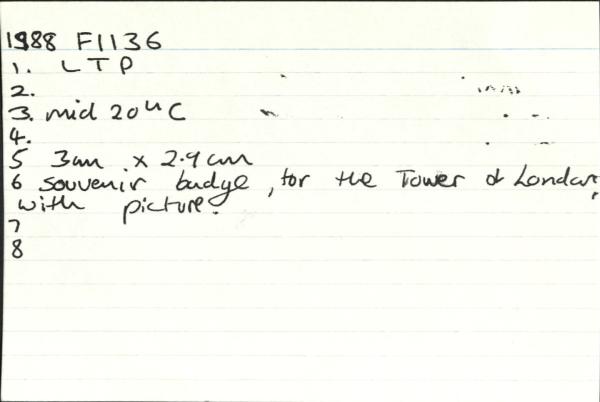 1988 F1136
1. LTP
2.
3. mid 20th C
4.
5 3cm x 2.9cm
6 souvenir badge, for the Tower of London,
with picture.
7
8